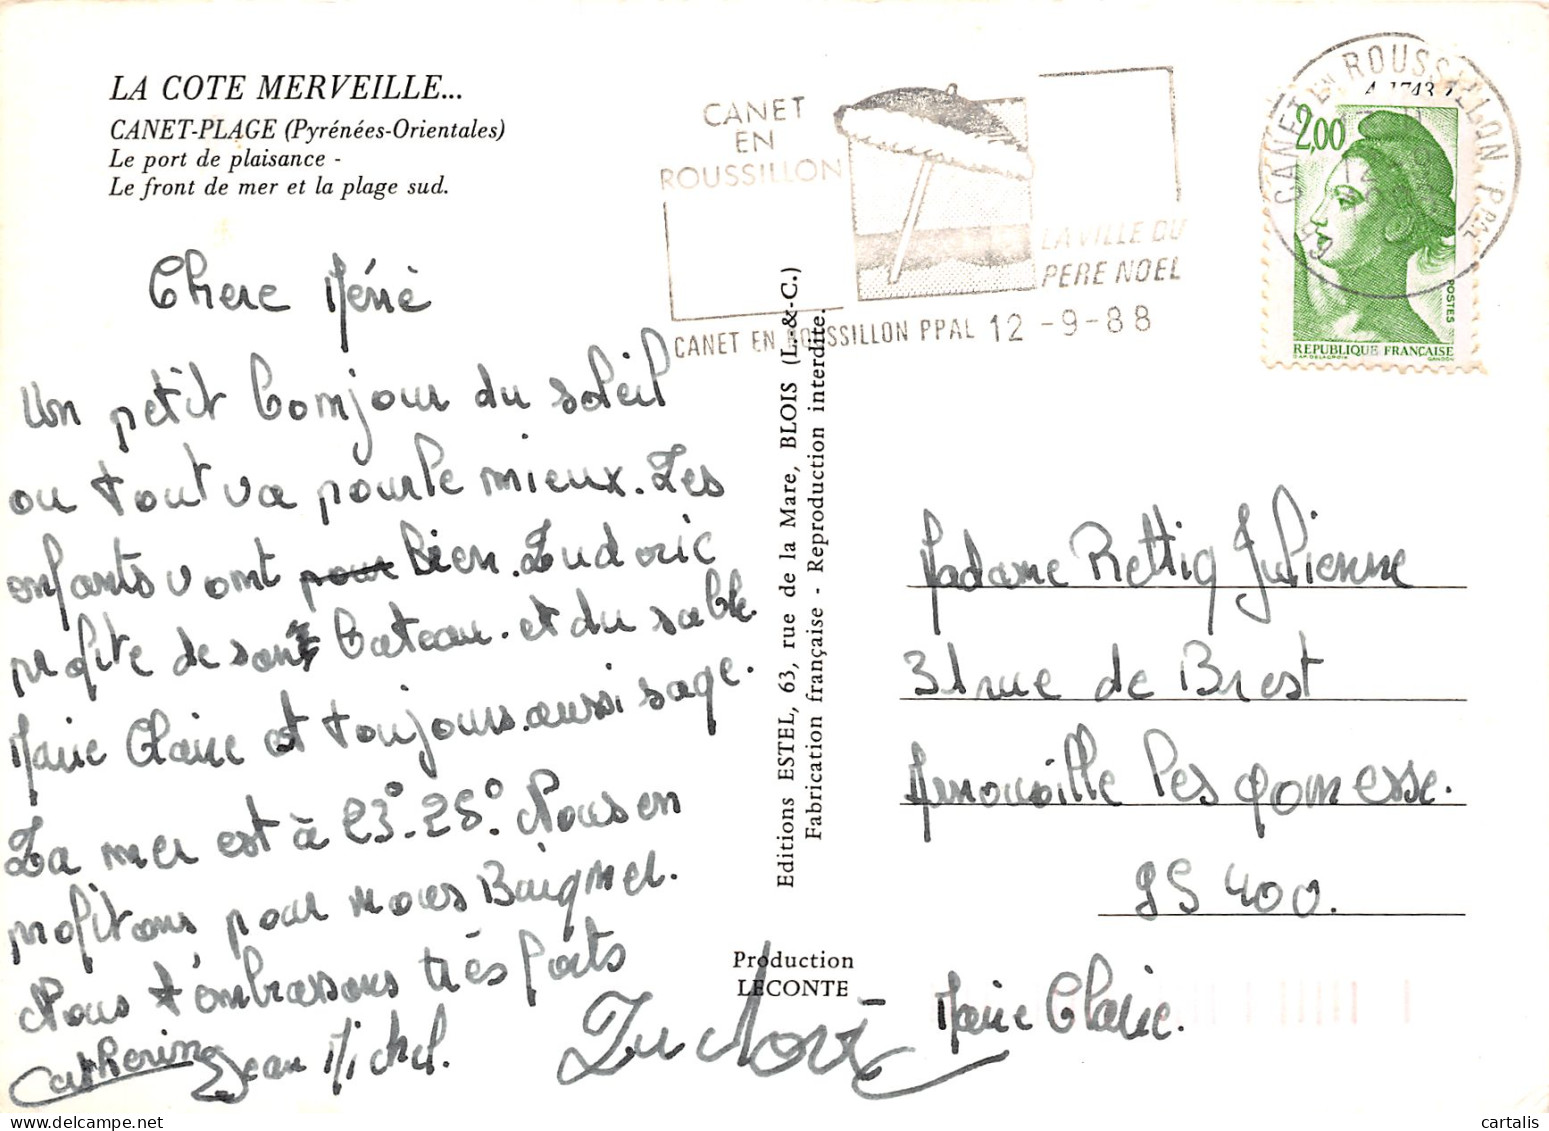 LA COTE MERVEILLE...
CANET-PLAGE (Pyrénées-Orientales)
Le port de plaisance -
Le front de mer et la plage sud.
CANET
EN
ROUSSILLON
LA VILLE DU
PERE NOEL
CANET EN ROUSSILLON PPAL 12 -9-88
CANET EN ROUSSILLON PPAL
2,00
POSTES
REPUBLIQUE FRANÇAISE
GANDON
Chere Mémé
Un petit bonjour du soleil
ou tout va pour le mieux. Les
enfants vont pour bien. Ludovic
profite de son bateau. et du sable
Marie Claire est toujours aussi sage.
La mer est à 23°-25°. Nous en
profitons pour nous Baigner.
Nous t'embrassons très forts
Catherine Jean Michel.
Ludovic
Marie Claire.
Editions ESTEL, 63, rue de la Mare, BLOIS (L.-&-C.)
Fabrication française - Reproduction interdite.
Production
LECONTE
Madame Rettig Julienne
31 rue de Brest
Arnouville les gonesse.
95 400.
cartalis